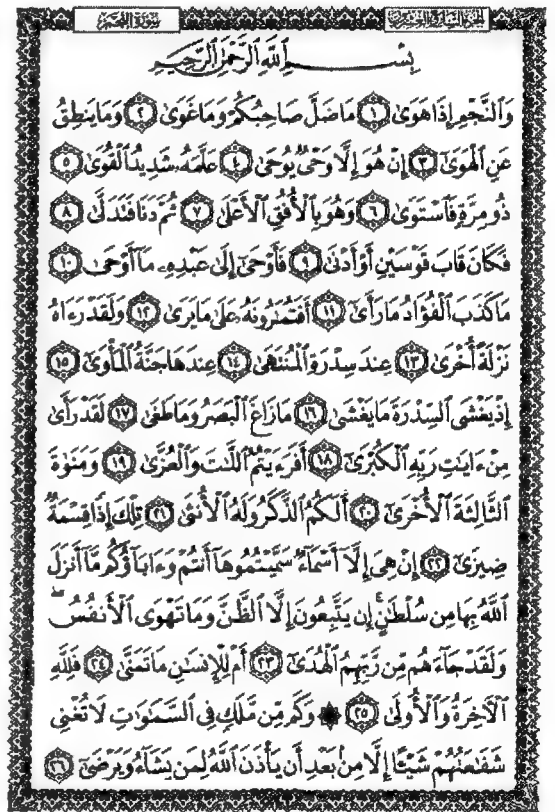 سُورَةُ النَّجْمِ
الجزء السابع والعشرون
بِسْمِ اللَّهِ الرَّحْمَٰنِ الرَّحِيمِ
وَالنَّجْمِ إِذَا هَوَىٰ ١ مَا ضَلَّ صَاحِبُكُمْ وَمَا غَوَىٰ ٢ وَمَا يَنطِقُ
عَنِ الْهَوَىٰ ٣ إِنْ هُوَ إِلَّا وَحْيٌ يُوحَىٰ ٤ عَلَّمَهُ شَدِيدُ الْقُوَىٰ ٥
ذُو مِرَّةٍ فَاسْتَوَىٰ ٦ وَهُوَ بِالْأُفُقِ الْأَعْلَىٰ ٧ ثُمَّ دَنَا فَتَدَلَّىٰ ٨
فَكَانَ قَابَ قَوْسَيْنِ أَوْ أَدْنَىٰ ٩ فَأَوْحَىٰ إِلَىٰ عَبْدِهِ مَا أَوْحَىٰ ١٠
مَا كَذَبَ الْفُؤَادُ مَا رَأَىٰ ١١ أَفَتُمَارُونَهُ عَلَىٰ مَا يَرَىٰ ١٢ وَلَقَدْ رَءَاهُ
نَزْلَةً أُخْرَىٰ ١٣ عِندَ سِدْرَةِ الْمُنتَهَىٰ ١٤ عِندَهَا جَنَّةُ الْمَأْوَىٰ ١٥
إِذْ يَغْشَى السِّدْرَةَ مَا يَغْشَىٰ ١٦ مَا زَاغَ الْبَصَرُ وَمَا طَغَىٰ ١٧ لَقَدْ رَأَىٰ
مِنْ ءَايَاتِ رَبِّهِ الْكُبْرَىٰ ١٨ أَفَرَءَيْتُمُ اللَّاتَ وَالْعُزَّىٰ ١٩ وَمَنَوٰةَ
الثَّالِثَةَ الْأُخْرَىٰ ٢٠ أَلَكُمُ الذَّكَرُ وَلَهُ الْأُنثَىٰ ٢١ تِلْكَ إِذًا قِسْمَةٌ
ضِيزَىٰ ٢٢ إِنْ هِيَ إِلَّا أَسْمَاءٌ سَمَّيْتُمُوهَا أَنتُمْ وَءَابَاؤُكُم مَّا أَنزَلَ
اللَّهُ بِهَا مِن سُلْطَٰنٍ ۚ إِن يَتَّبِعُونَ إِلَّا الظَّنَّ وَمَا تَهْوَى الْأَنفُسُ ۖ
وَلَقَدْ جَاءَهُم مِّن رَّبِّهِمُ الْهُدَىٰ ٢٣ أَمْ لِلْإِنسَٰنِ مَا تَمَنَّىٰ ٢٤ فَلِلَّهِ
الْآخِرَةُ وَالْأُولَىٰ ٢٥ ۞ وَكَم مِّن مَّلَكٍ فِي السَّمَٰوَٰتِ لَا تُغْنِي
شَفَٰعَتُهُمْ شَيْئًا إِلَّا مِن بَعْدِ أَن يَأْذَنَ اللَّهُ لِمَن يَشَاءُ وَيَرْضَىٰ ٢٦